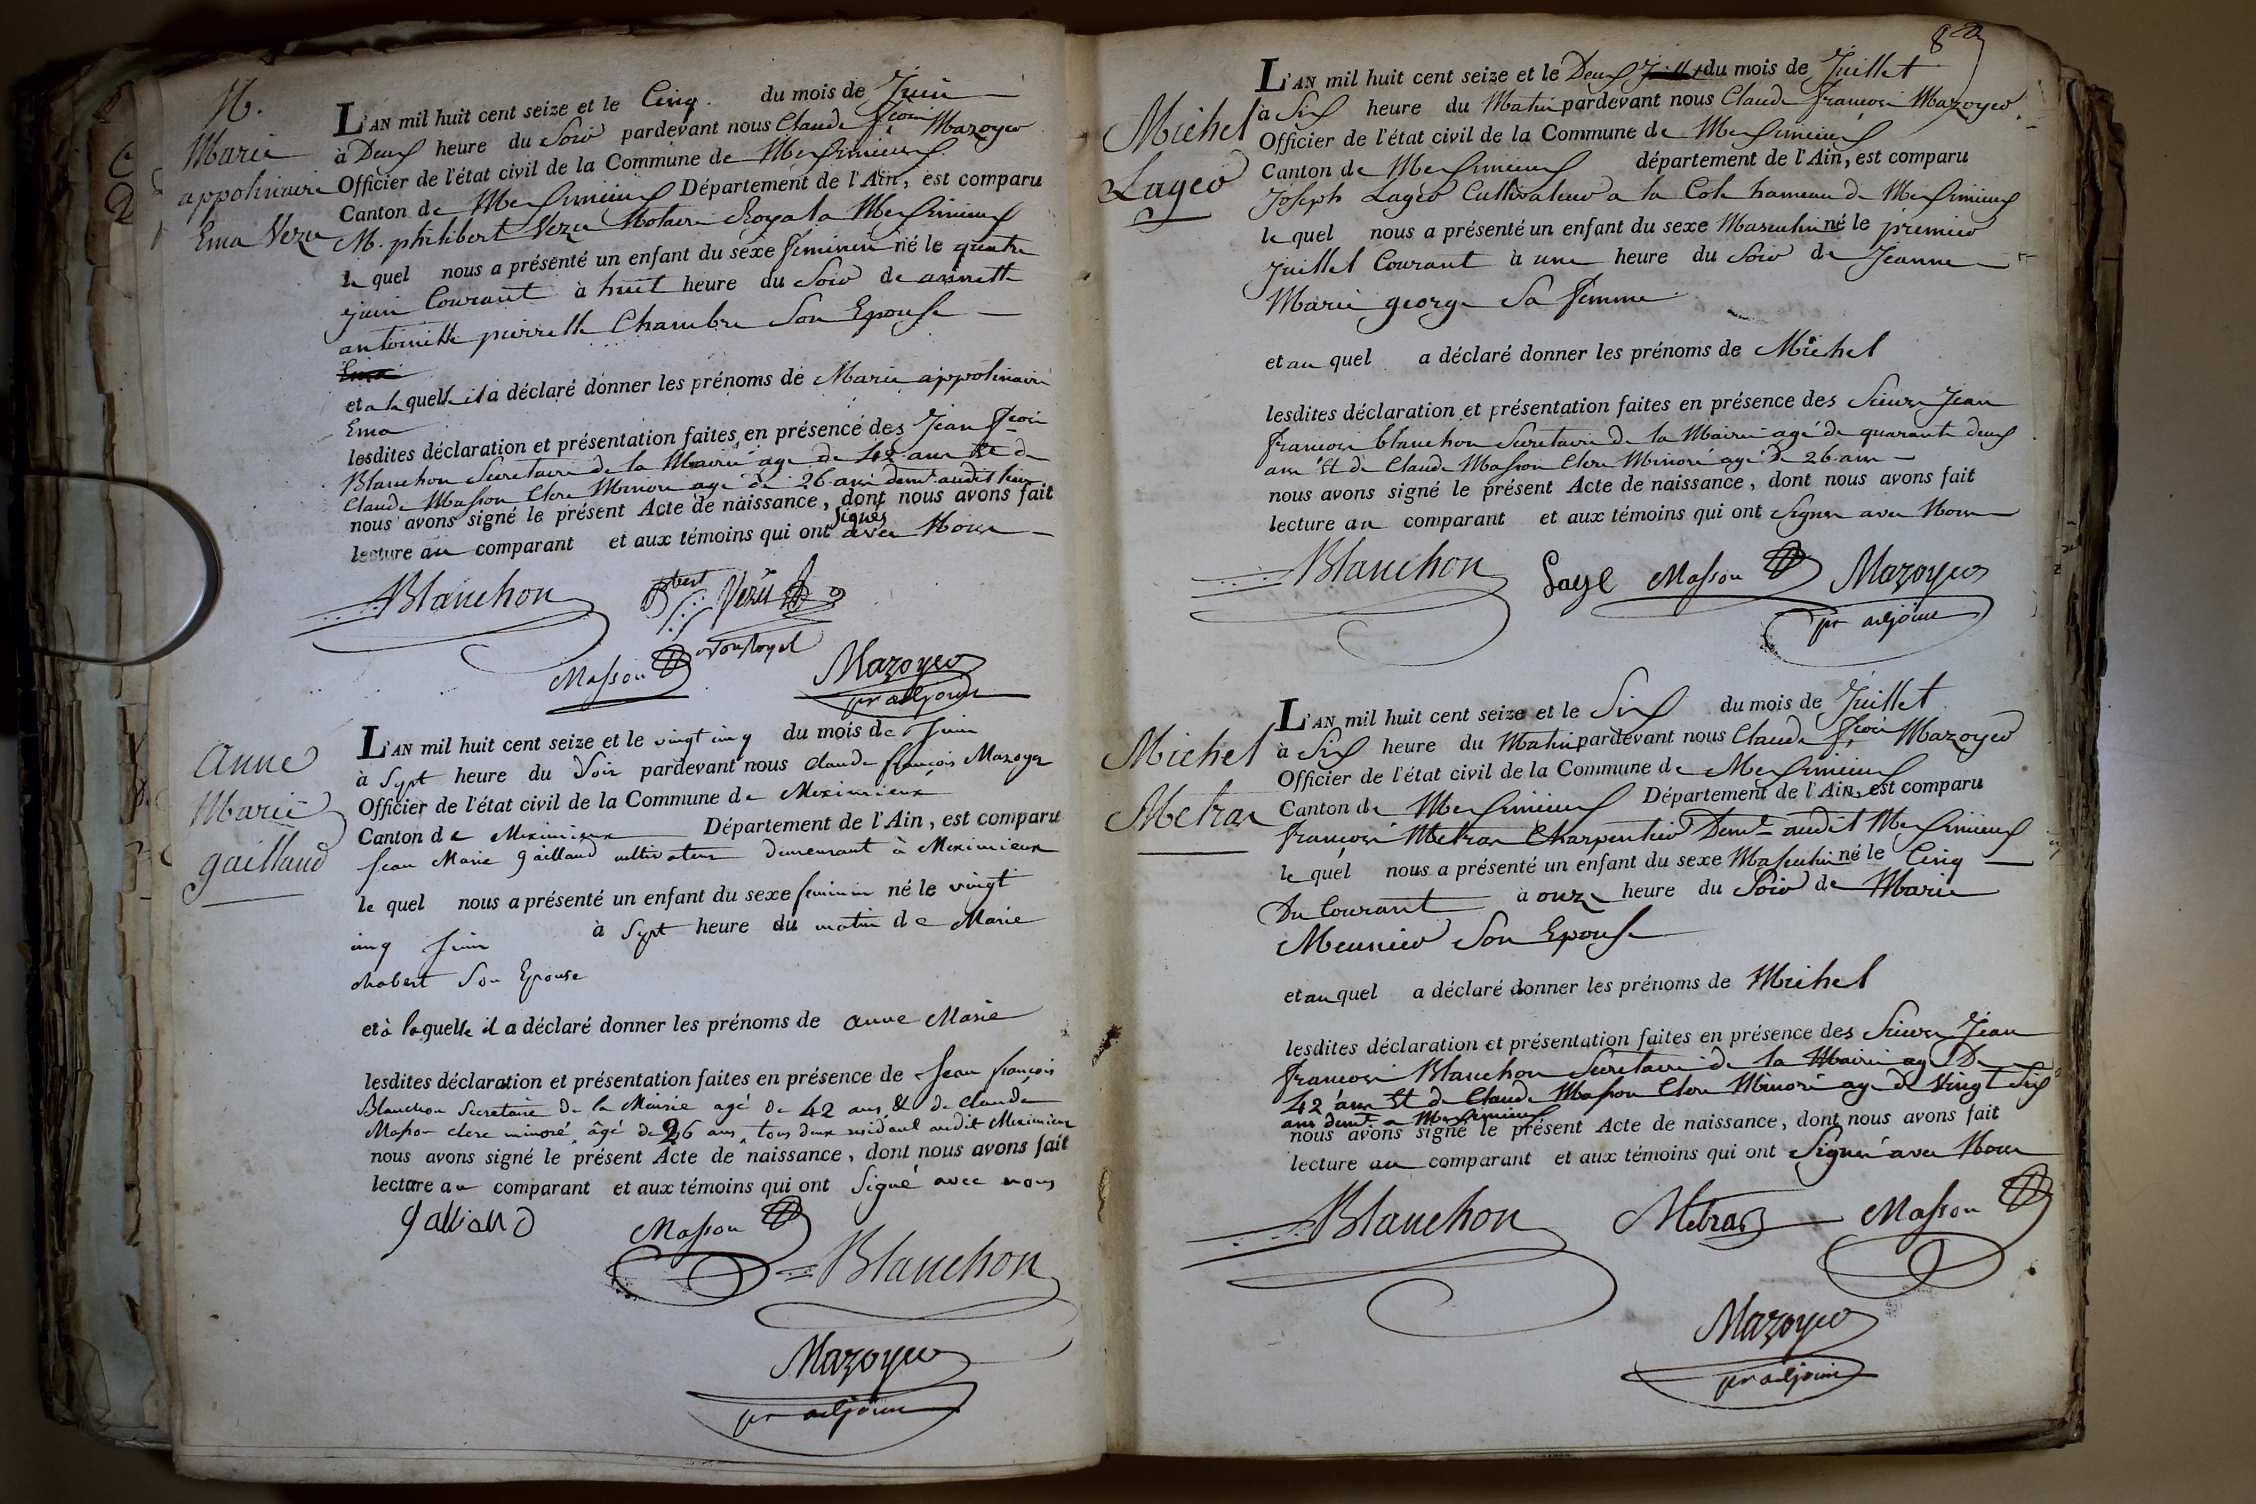 N.
Marie
appolinaire
Ema Veru
L'AN mil huit cent seize et le Cinq du mois de Juin
à Deux heure du Soir pardevant nous Claude fcois Mazoyer
Officier de l'état civil de la Commune de Meximieux
Canton de Meximieux Département de l'Ain, est comparu
M. philibert Veru Notaire Royal a Meximieux
le quel nous a présenté un enfant du sexe féminin né le quatre
juin Courant à huit heure du Soir de annette
antoinette pierrette Chambre Son Epouse
Ema
et a la quelle il a déclaré donner les prénoms de Marie appolinaire
Ema
lesdites déclaration et présentation faites en présence des Jean fcois
Blanchon Secretaire de la Mairie age de 42 ans Et de
Claude Masson Clerc Minoré agé de 26 ans demt audit lieu
nous avons signé le présent Acte de naissance, dont nous avons fait
signés
lecture au comparant et aux témoins qui ont avec Nous
Blanchon
Pbert Verü
Masson
Mazoyer
pr adjoint
anne
Marie
gaillaud
L'AN mil huit cent seize et le vingt cinq du mois de Juin
à Sept heure du Soir pardevant nous Claude françois Mazoyer
Officier de l'état civil de la Commune de Meximieux
Canton de Meximieux Département de l'Ain, est comparu
Jean Marie gaillaud cultivateur demeurant à Meximieux
le quel nous a présenté un enfant du sexe feminin né le vingt
cinq Juin à Sept heure du matin de Marie
chabert Son Epouse
et à laquelle il a déclaré donner les prénoms de anne Marie
lesdites déclaration et présentation faites en présence de Jean françois
Blanchon Secretaire de la Mairie agé de 42 ans & de Claude
Masson clerc minoré, âgé de 26 ans, tous deux residant audit Meximieux
nous avons signé le présent Acte de naissance, dont nous avons fait
lecture au comparant et aux témoins qui ont Signé avec nous
galliand
Masson
Blanchon
Mazoyer
pr adjoint
Michel
Lager
L'AN mil huit cent seize et le Deux Juillet du mois de Juillet
à Six heure du Matin pardevant nous Claude francois Mazoyer
Officier de l'état civil de la Commune de Meximieux
Canton de Meximieux département de l'Ain, est comparu
Joseph Lager Cultivateur a la Cote hameau de Meximieux
le quel nous a présenté un enfant du sexe Masculin né le premier
Juillet Courant à une heure du Soir de Jeanne
Marie george Sa femme
et au quel a déclaré donner les prénoms de Michel
lesdites déclaration et présentation faites en présence des Sieurs Jean
francois blanchon Secretaire de la Mairie agé de quarante deux
ans Et de Claude Masson Clerc Minoré agé de 26 ans
nous avons signé le présent Acte de naissance, dont nous avons fait
lecture au comparant et aux témoins qui ont Signer avec Nous
Blanchon
Laye
Masson
Mazoyer
pr adjoint
Michel
Metras
L'AN mil huit cent seize et le Six du mois de Juillet
à Six heure du Matin pardevant nous Claude fcois Mazoyer
Officier de l'état civil de la Commune de Meximieux
Canton de Meximieux Département de l'Ain, est comparu
francois Metras Charpentier Demt audit Meximieux
le quel nous a présenté un enfant du sexe Masculin né le Cinq
Du Courant à onze heure du Soir de Marie
Meunier Son Epouse
et au quel a déclaré donner les prénoms de Michel
lesdites déclaration et présentation faites en présence des Sieurs Jean
francois Blanchon Secretaire de la Mairie age De
42 ans Et de Claude Masson Clerc Minoré age de Vingt Six
ans demt a Meximieux
nous avons signé le présent Acte de naissance, dont nous avons fait
lecture au comparant et aux témoins qui ont Signés avec Nous
Blanchon
Metras
Masson
Mazoyer
pr adjoint